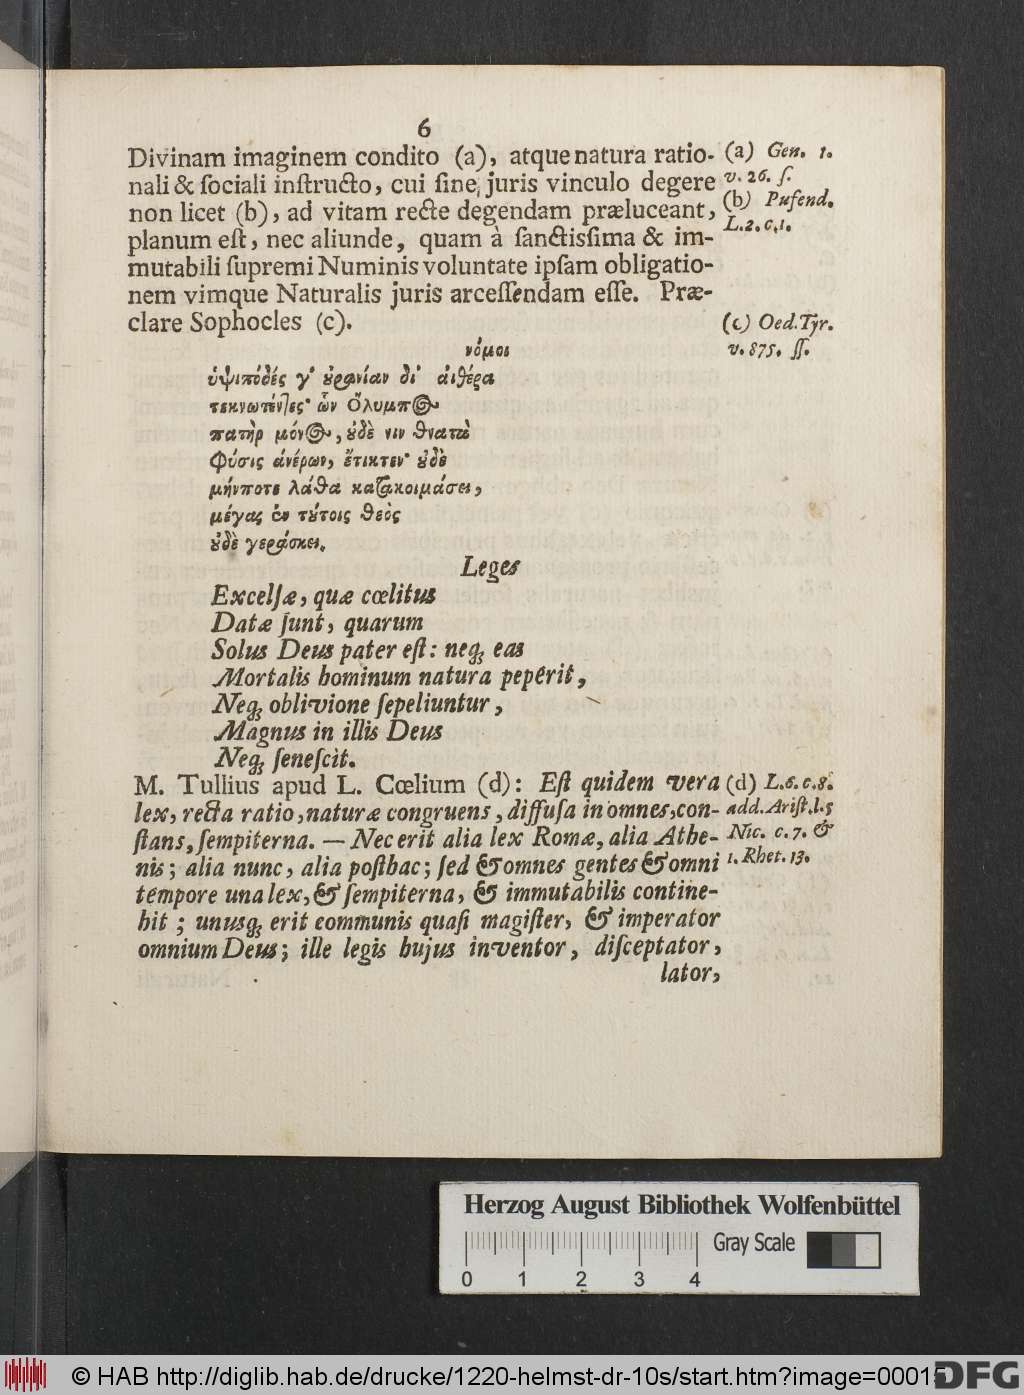 6
Divinam imaginem condito (a), atque natura ratio-
nali & ſociali inſtructo, cui ſine juris vinculo degere
non licet (b), ad vitam recte degendam præluceant,
planum eſt, nec aliunde, quam à ſanctisſima & im-
mutabili ſupremi Numinis voluntate ipſam obligatio-
nem vimque Naturalis juris arceſſendam eſſe. Præ-
clare Sophocles (c).
(a) Gen. 1.
v. 26. ſ.
(b) Pufend.
L. 2. c. 1.
(c) Oed. Tyr.
v. 875. ſſ.
νόμοι
ὑψιπόδές γ' ȣ̓ρανίαν δι' αἰθέρα
τεκνωτέντες· ὧν Ὄλυμπος
πατὴρ μόνος, ȣ̓δὲ νιν θνατὰ
Φύσις ἀνέρων, ἔτικτεν· ȣ̓δὲ
μήνποτε λάθα κατακοιμάσει,
μέγας ἐν τȣ́τοις θεὸς
ȣ̓δὲ γεράσκει.
Leges
Excelſæ, quæ cœlitus
Datæ ſunt, quarum
Solus Deus pater eſt: neq; eas
Mortalis hominum natura peperit,
Neq; oblivione ſepeliuntur,
Magnus in illis Deus
Neq; ſeneſcit.
M. Tullius apud L. Cœlium (d): Eſt quidem vera
lex, recta ratio, naturæ congruens, diffuſa in omnes, con-
ſtans, ſempiterna. — Nec erit alia lex Romæ, alia Athe-
nis; alia nunc, alia poſthac; ſed & omnes gentes & omni
tempore una lex, & ſempiterna, & immutabilis contine-
bit; unusq; erit communis quaſi magiſter, & imperator
omnium Deus; ille legis hujus inventor, diſceptator,
lator,
(d) L. 6. c. 8.
add. Ariſt. l. 5
Nic. c. 7. &
1. Rhet. 13.
Herzog August Bibliothek Wolfenbüttel
Gray Scale
0 1 2 3 4
© HAB http://diglib.hab.de/drucke/1220-helmst-dr-10s/start.htm?image=00015
DFG